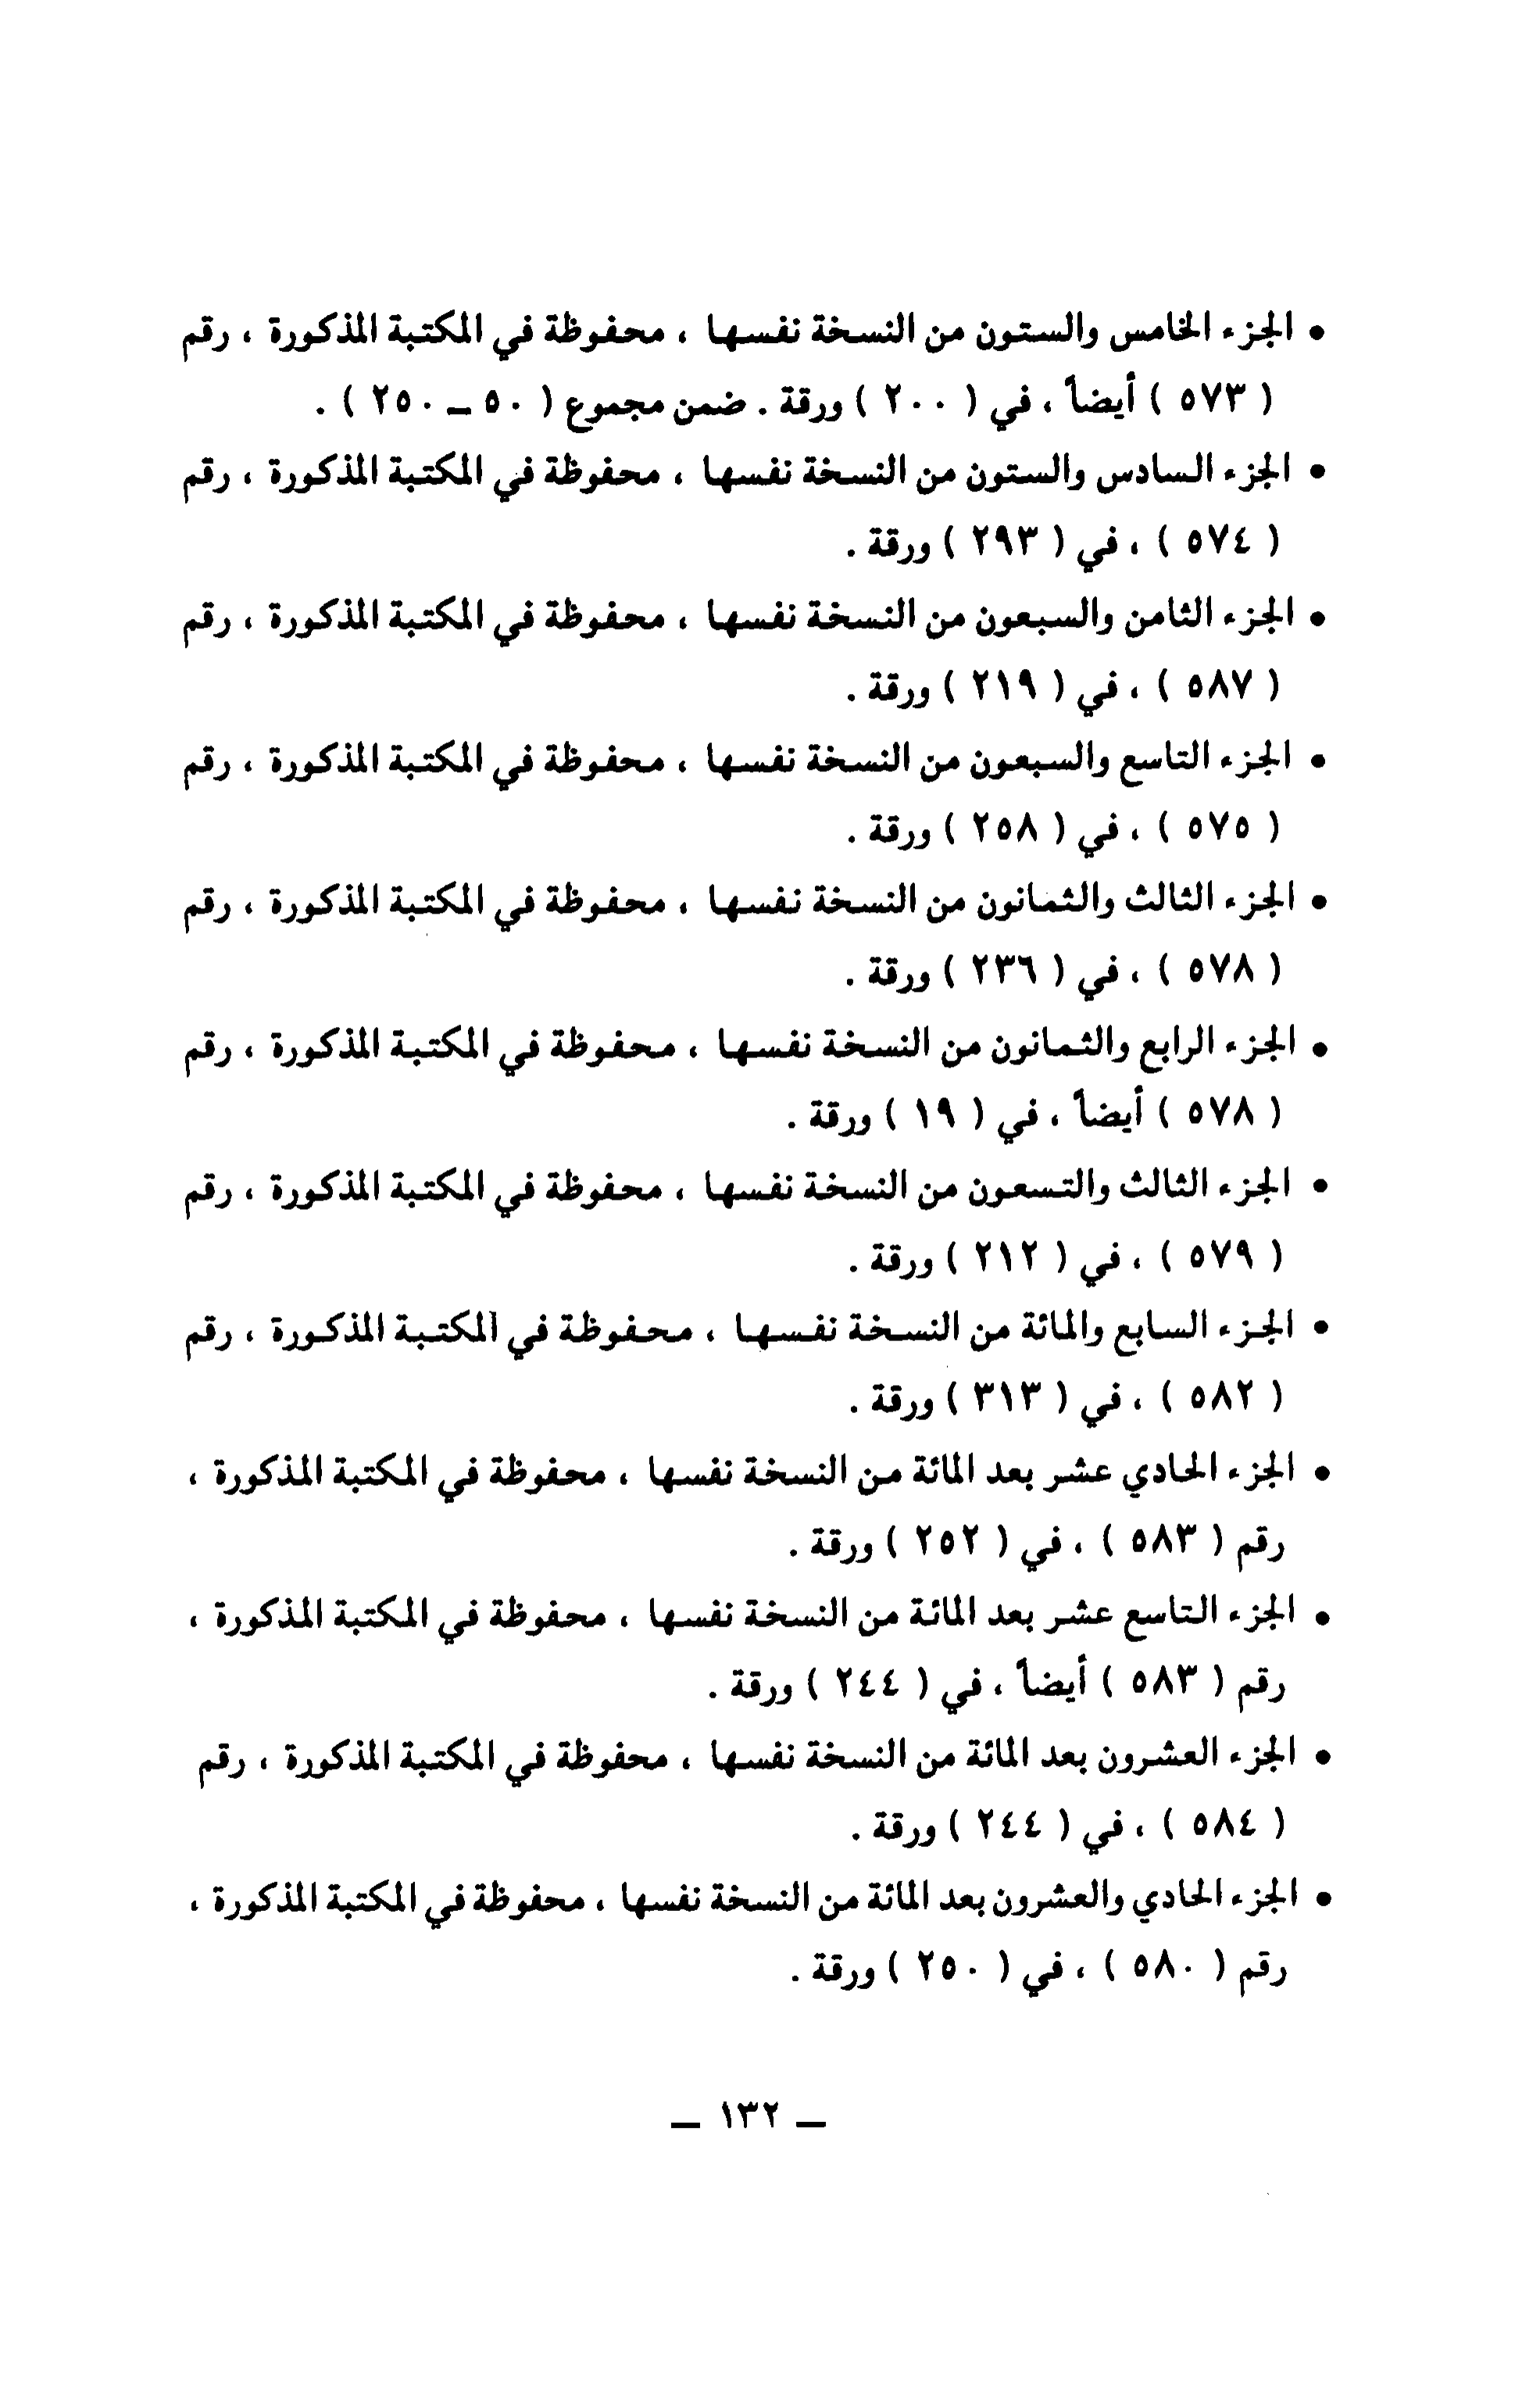 • الجزء الخامس والستون من النسخة نفسها ، محفوظة في المكتبة المذكورة ، رقم
( ٥٧٣ ) أيضاً ، في ( ٢٠٠ ) ورقة . ضمن مجموع ( ٥٠ ــ ٢٥٠ ) .
• الجزء السادس والستون من النسخة نفسها ، محفوظة في المكتبة المذكورة ، رقم
( ٥٧٤ ) ، في ( ٢٩٣ ) ورقة .
• الجزء الثامن والسبعون من النسخة نفسها ، محفوظة في المكتبة المذكورة ، رقم
( ٥٨٧ ) ، في ( ٢١٩ ) ورقة .
• الجزء التاسع والسبعون من النسخة نفسها ، محفوظة في المكتبة المذكورة ، رقم
( ٥٧٥ ) ، في ( ٢٥٨ ) ورقة .
• الجزء الثالث والثمانون من النسخة نفسها ، محفوظة في المكتبة المذكورة ، رقم
( ٥٧٨ ) ، في ( ٢٣٦ ) ورقة .
• الجزء الرابع والثمانون من النسخة نفسها ، محفوظة في المكتبة المذكورة ، رقم
( ٥٧٨ ) أيضاً ، في ( ١٩ ) ورقة .
• الجزء الثالث والتسعون من النسخة نفسها ، محفوظة في المكتبة المذكورة ، رقم
( ٥٧٩ ) ، في ( ٢١٢ ) ورقة .
• الجزء السابع والمائة من النسخة نفسها ، محفوظة في المكتبة المذكورة ، رقم
( ٥٨٢ ) ، في ( ٣١٣ ) ورقة .
• الجزء الحادي عشر بعد المائة من النسخة نفسها ، محفوظة في المكتبة المذكورة ،
رقم ( ٥٨٣ ) ، في ( ٢٥٢ ) ورقة .
• الجزء التاسع عشر بعد المائة من النسخة نفسها ، محفوظة في المكتبة المذكورة ،
رقم ( ٥٨٣ ) أيضاً ، في ( ٢٤٤ ) ورقة .
• الجزء العشرون بعد المائة من النسخة نفسها ، محفوظة في المكتبة المذكورة ، رقم
( ٥٨٤ ) ، في ( ٢٤٤ ) ورقة .
• الجزء الحادي والعشرون بعد المائة من النسخة نفسها ، محفوظة في المكتبة المذكورة ،
رقم ( ٥٨٠ ) ، في ( ٢٥٠ ) ورقة .
ــ ١٣٢ ــ